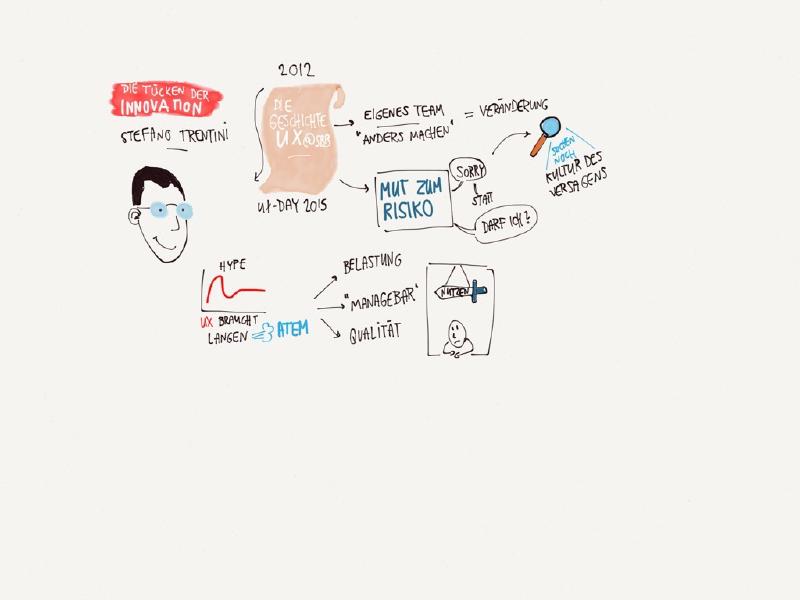 DIE TÜCKEN DER
INNOVATION
STEFANO TRENTINI
2012
DIE
GESCHICHTE
UX@SBB
UX-DAY 2015
EIGENES TEAM
"ANDERS MACHEN"
= VERÄNDERUNG
MUT ZUM
RISIKO
SORRY
STATT
DARF ICH?
SUCHEN
NOCH
KULTUR DES
VERSAGENS
HYPE
UX BRAUCHT
LANGEN ATEM
BELASTUNG
"MANAGEBAR"
QUALITÄT
NUTZEN